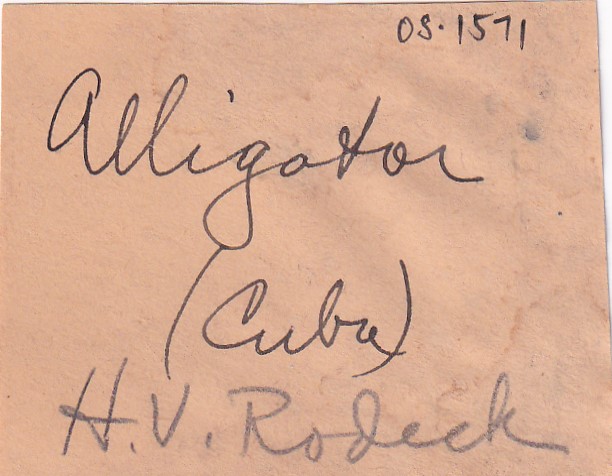 OS.1571
Alligator
(Cuba)
H.V. Rodeck